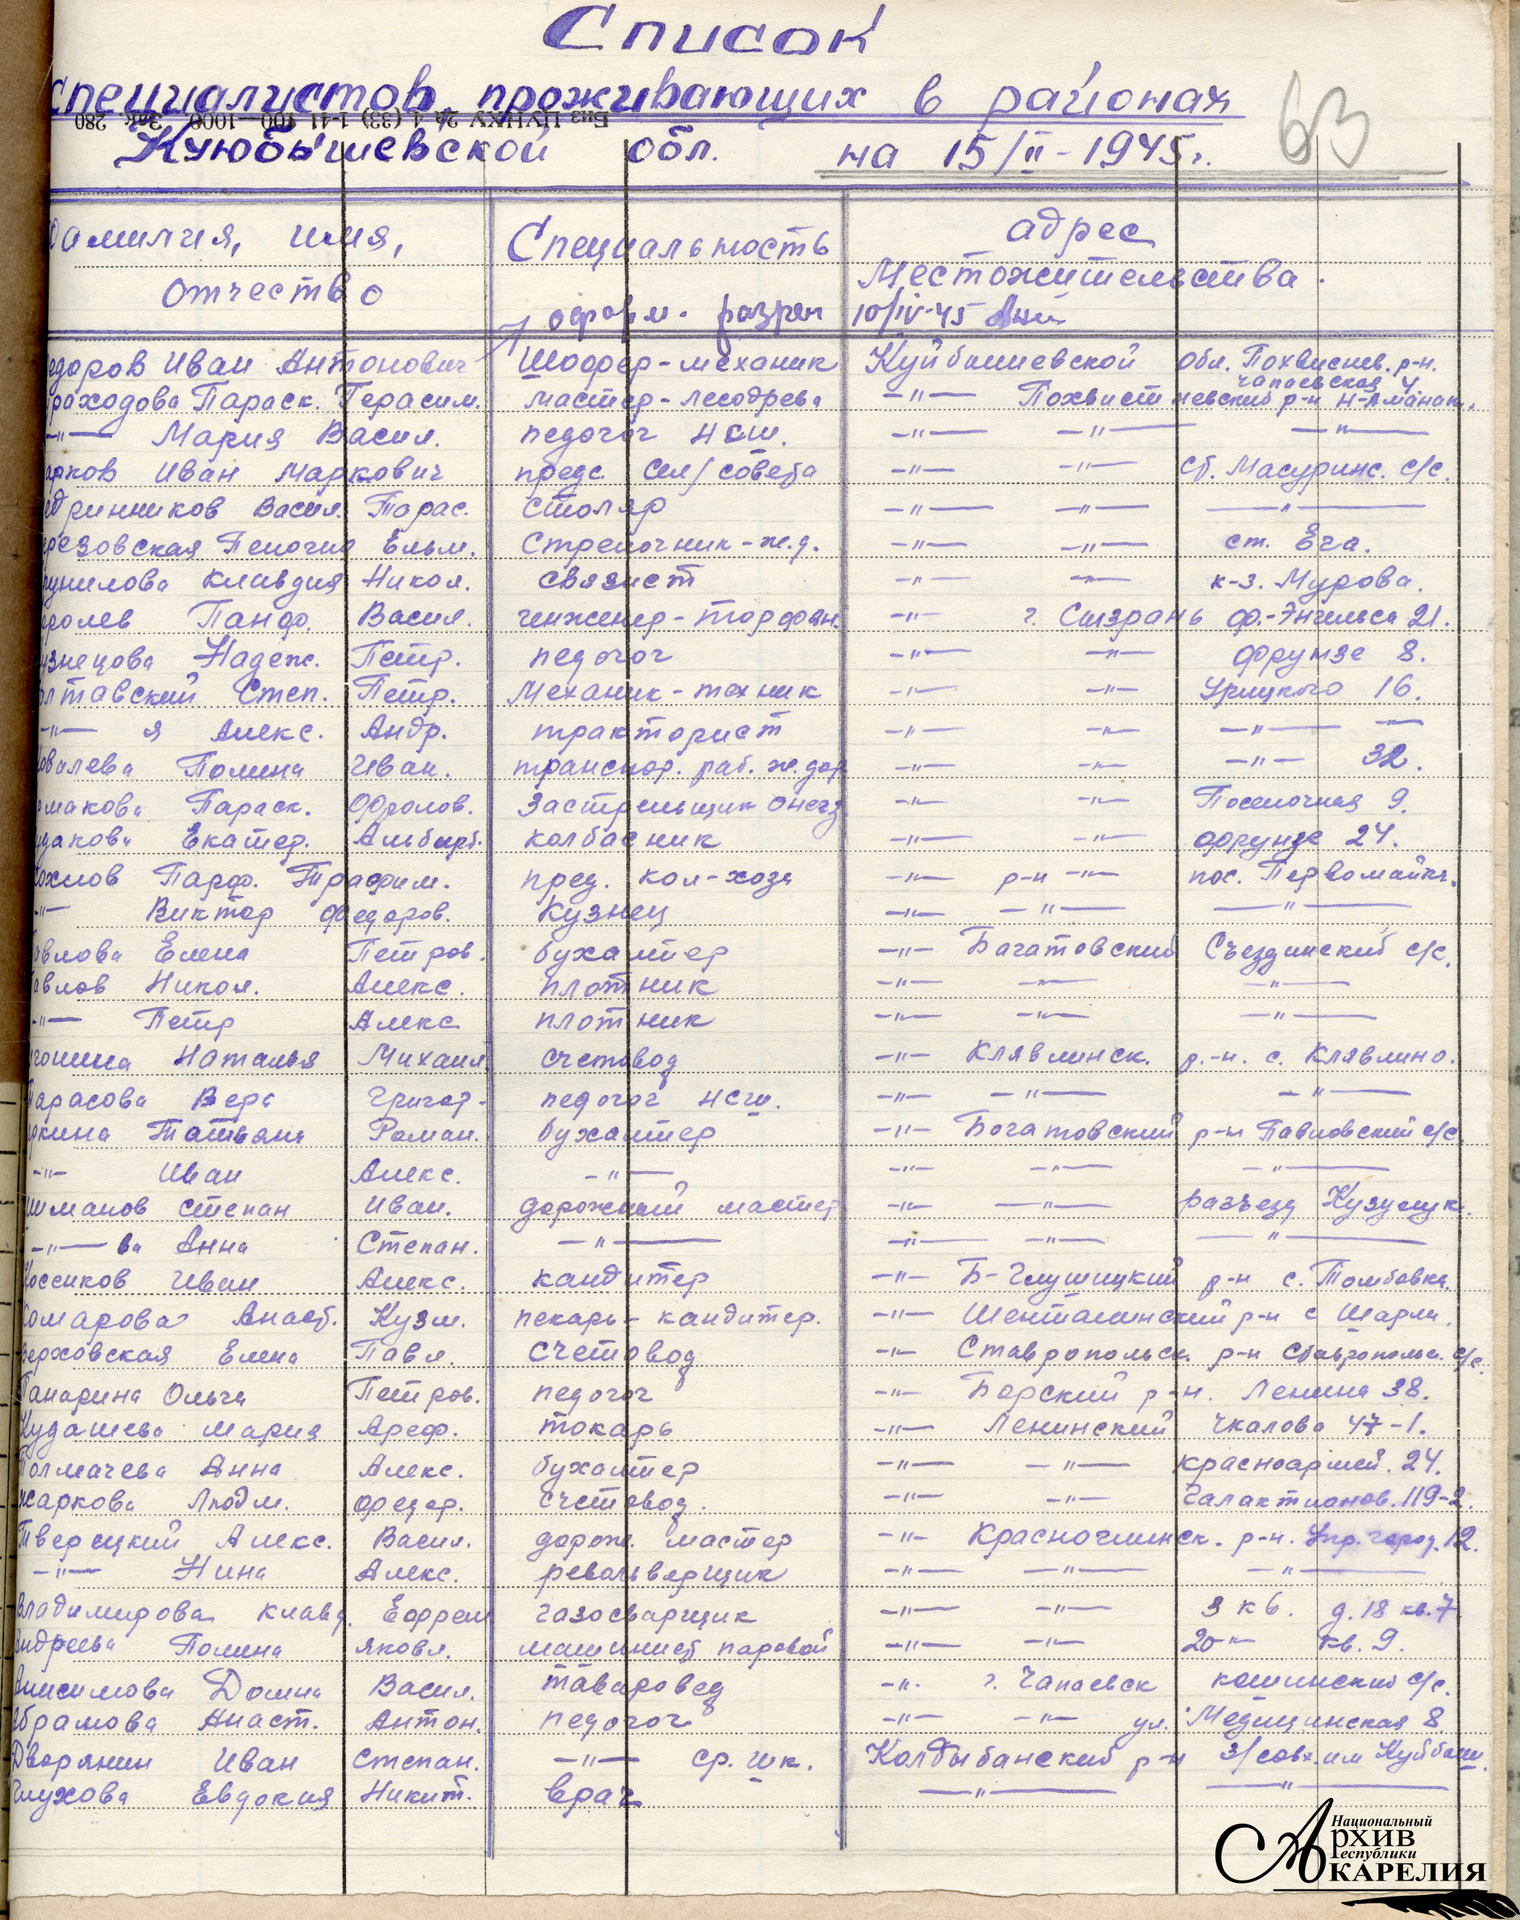 Список
специалистов, проживающих в районах
Биз ЦУНХУ 2а 4 (33) 1-41 г. 100—1000. Зак. 280
Куюбышевской обл. на 15/II-1945г.
63
Фамилия, имя, Специальность адрес
отчество Местожительства.
оформ. разреш 10/IV-45
едоров Иван Антонович Шоффер-механик Куйбышевской обл. Похвистнев. р-н.
Чапаевская 4
раходова Параск. Герасим. мастер-лесодрева -"- Похвистневский р-н Н-Аманак.
-"- Мария Васил. педогог НСШ. -"- -"- -"-
арков Иван Маркович предс. сел/совета -"- -"- ст. Масуринс. с/с.
дринников Васил. Тарас. столяр -"- -"- -"-
резовская Пелогия Ельм. Стрелочник-ж.д. -"- -"- ст. Ега.
унилова Клавдия Никол. связист -"- -"- к-з. Мурова.
ролев Панф. Васил. инженер-торфян. -"- г. Сызрань Ф.-Энгельса 21.
узнецова Надеж. Петр. педогог -"- -"- Фрунзе 8.
лтавский Степ. Петр. Механик-техник -"- -"- Урицкого 16.
-"- я Алекс. Андр. тракторист -"- -"- -"- -"-
овалева Полина Иван. транспор. раб. ж.дор -"- -"- -"- 32.
омакова Параск. Фролов. Застрельщик -"- -"- Поселочная 9.
удакова Екатер. Альберт. колбасник -"- -"- Фрунзе 24.
охлов Парф. Трафим. пред. кол-хоза -"- р-н -"- пос. Первомайск.
-"- Виктор Федоров. Кузнец -"- -"- -"-
авлова Елена Петров. бухалтер -"- Багатовский Съездинский с/с.
авлов Никол. Алекс. плотник -"- -"- -"-
-"- Петр Алекс плотник -"- -"- -"-
гонина Наталья Михаил. счетовод -"- Клявлинск. р.-н. с. Клявлино.
Тарасова Вера Григор- педогог НСШ. -"- -"- -"-
ркина Татьяна Роман. бухалтер -"- Богатовский р-н Павловский с/с.
-"- Иван Алекс. -"- -"- -"- -"-
шманов Степан Иван. дорожный мастер -"- -"- разъезд Кузулук.
-"- ва Анна Степан. -"- -"- -"- -"-
Россиков Иван Алекс. кандитер -"- Б-Глушицкий р-н с. Томбовка.
омарова Анаст. Кузм. пекарь-кандитер. -"- Шенталинский р-н с Шарла.
ерховская Елена Павл. счетовод -"- Ставропольск. р-н Ставропольс. с/с.
Панарина Ольга Петров. педогог -"- Борский р-н. Ленина 38.
Кудашева Мария Ареф. токарь -"- Ленинский Чкалова 47-1.
Толмачева Анна Алекс. бухалтер -"- -"- Красноармей. 24.
Жаркова Людм. Федер. счетовод. -"- -"- Галактионов. 119-2.
Тверецкий Алекс. Васил. дорож. мастер -"- Красноглинск. р-н. Упр. город. 12.
-"- Нина Алекс. револьверщик -"- -"- -"-
Владимирова Клавд. Ефрем газосварщик -"- -"- 3 кв. д. 18 кв. 7
Андреева Полина Яковл. машинист паровой -"- -"- 20-"- кв. 9.
Анисимова Домна Васил. тавировед -"- г. Чапаевск кошинский с/с.
Абрамова Анаст. Антон. педогог -"- -"- ул. Медицинская 8
Дворянин Иван Степан. -"- ср. шк. Колдыбанский р-н З/совх. им Куйбыш.
Глухова Евдокия Никит. врач -"- -"-
Национальный
Архив
Республики
Карелия